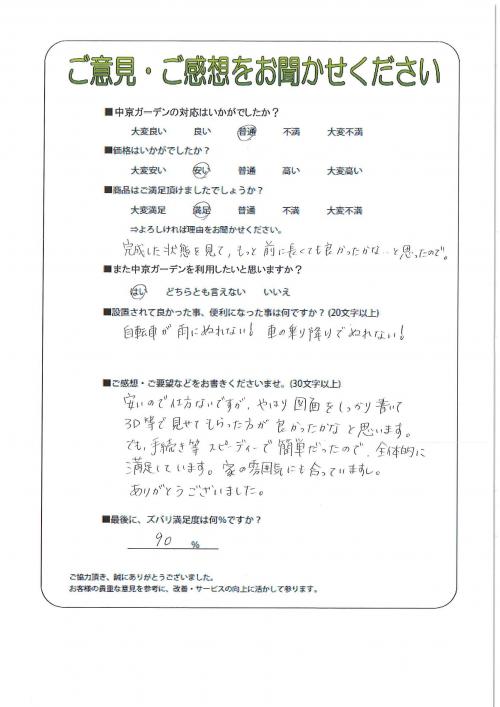 ご意見・ご感想をお聞かせください
■中京ガーデンの対応はいかがでしたか？
大変良い 良い 普通 不満 大変不満
■価格はいかがでしたか？
大変安い 安い 普通 高い 大変高い
■商品はご満足頂けましたでしょうか？
大変満足 満足 普通 不満 大変不満
⇒よろしければ理由をお聞かせください。
完成した状態を見て、もっと前に長くても良かったかな…と思ったので。
■また中京ガーデンを利用したいと思いますか？
はい どちらとも言えない いいえ
■設置されて良かった事、便利になった事は何ですか？（20文字以上）
自転車が雨にぬれない！ 車の乗り降りでぬれない！
■ご感想・ご要望などをお書きくださいませ。（30文字以上）
安いので仕方ないですが、やはり図面をしっかり書いて
3D等で見せてもらった方が良かったかなと思います。
でも、手続き等スピーディーで簡単だったので、全体的に
満足しています。家の雰囲気にも合っていますし。
ありがとうございました。
■最後に、ズバリ満足度は何％ですか？
90 ％
ご協力頂き、誠にありがとうございました。
お客様の貴重な意見を参考に、改善・サービスの向上に活かして参ります。